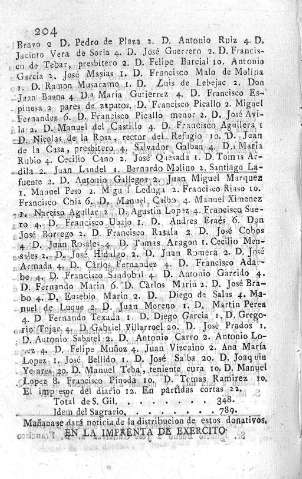 204
Bravo 2 D. Pedro de Plaza 2. D. Antonio Ruiz 4. D.
Jacinto Vera de Soria 4. D. José Guerrero 2. D. Francis-
co de Tebar, presbitero 2. D. Felipe Barcial 10. Antonio
Garcia 2. José Masias 1. D. Francisco Malo de Molina
1. D. Ramon Musaramo 1. D. Luis de Lebejar 2. Don
Juan Baena 4 D. Maria Gutierrez 4. D. Francisco Es-
pinosa 2 pares de zapatos, D. Francisco Picallo 2. Miguel
Fernandez 6. D. Francisco Picallo menor 2. D. José Avi-
la 2. D. Manuel del Castillo 4. D. Francisco Aguilera 1
D. Nicolas de la Rosa, rector del Refugio 10. D. Juan
de la Casa, presbitero 4. Salvador Galban 4. D. Maria
Rubio 4. Cecilio Cano 2. José Quesada 1. D. Tomas Ar-
dila 2. Juan Lendel 1. Bernardo Molino 1. Santiago La-
fuente 2. D. Antonio Gallegos 2. Juan Miguel Marquez
1. Manuel Pero 2. Miguel Leduga 2. Francisco Riaso 10.
Francisco Chia 6. D. Manuel Calbo 4. Manuel Ximenez
2. Narciso Aguilar 2. D. Agustin Lopez 4. Francisca Sue-
ro 4. D. Francisco Ubajo 1. D. Andres Eraes 6. Don
José Borrego 2. D. Francisco Rasala 2. D. José Cobos
4. D. Juan Rosales 4. D. Tomas Aragon 1. Cecilio Men-
sales 1. D. José Hidalgo 2. D. Juan Romera 2. D. José
Armada 4. D. Carlos Fernandez 4. D. Francisco Ada-
bo 4. D. Francisco Sandobal 4. D. Antonio Garrido 4.
D. Fernando Marin 6. D. Carlos Maria 2. D. José Bra-
bo 4. D. Eusebio Marin 2. D. Diego de Salas 4. Ma-
nuel de Luque 2. D. Juan Moreno 1. D. Martin Perez
4. D Fernando Texada 1. D. Diego Garcia 1. D. Grego-
rio Tojar 4. D. Gabriel Villarroel 20. D. José Prados 1.
D. Antonio Sabatel 2. D. Antonio Carvo 2. Antonio Lo-
pez 4. D. Felipe Muñoz 4. Juan Vizcaino 2. Ana Maria
Lopez 1. José Bellido 1. D. José Salba 20. D. Joaquin
Yorares 20. D. Manuel Teba, teniente cura 10. D. Manuel
Lopez 8. Francisco Pineda 10. D. Tomas Ramirez 10.
El impresor del diario 12. En partidas cortas 22.
Total de S. Gil, . . . . . . . . . 348.
Idem del Sagrario, . . . . . . . . . 789.
Mañana se dará noticia de la distribucion de estos donativos.
EN LA IMPRENTA DE EXERCITO